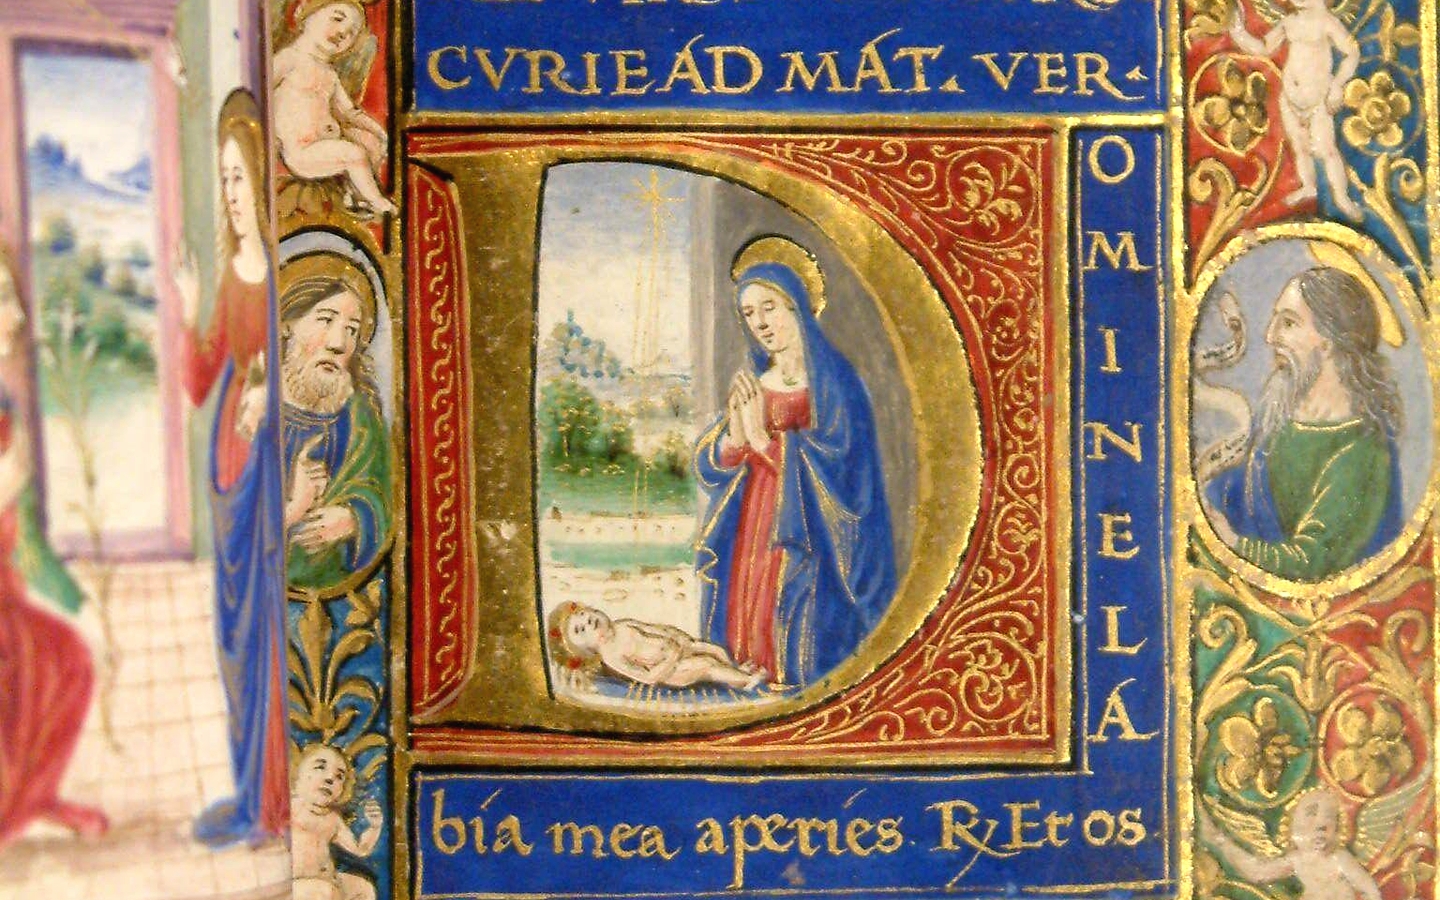 CVRIE ÁD MÁT. VER
D
O
M
I
N
E
L
Á
bía mea aperies. ℟ Et os